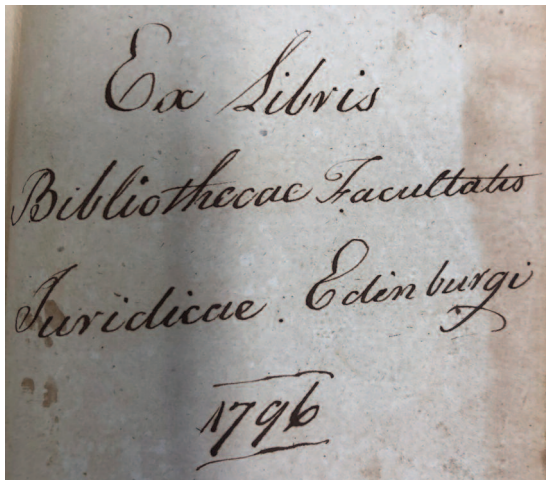 Ex Libris
Bibliothecae Facultatis
Juridicae Edinburgi
1796